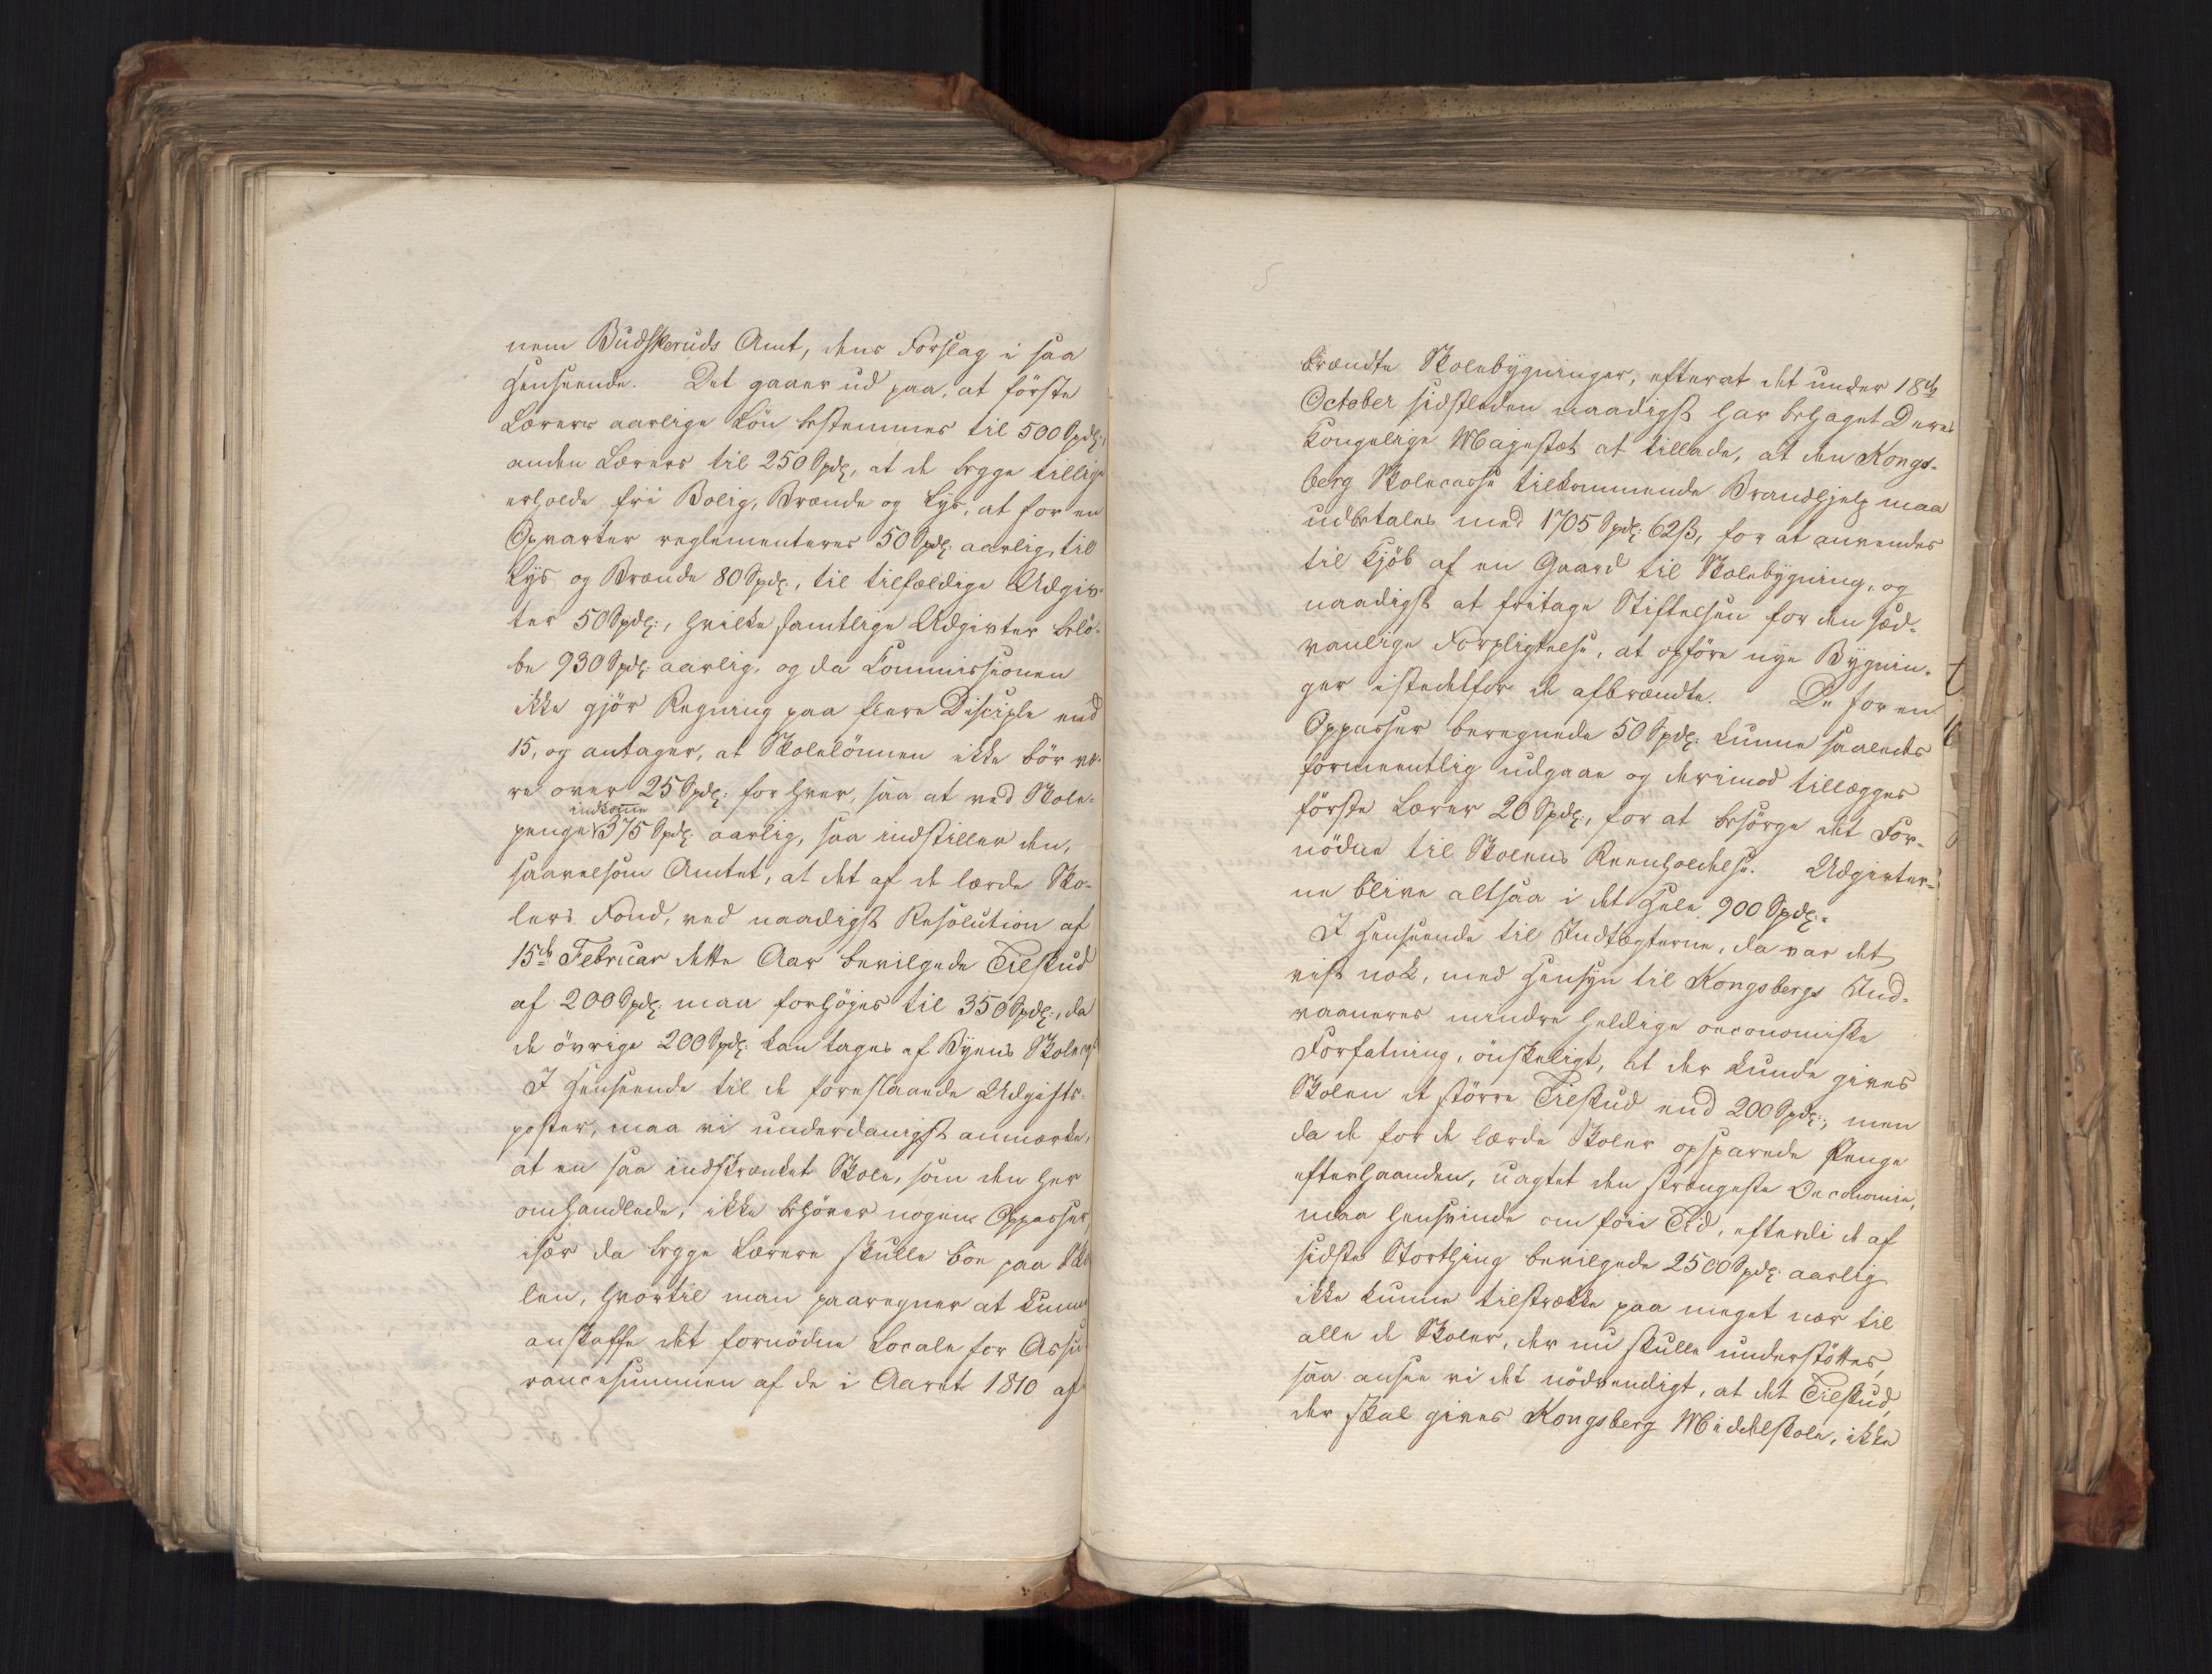 nem Budskeruds Amt, dens Forslag i saa
Henseende. Det gaaer ud paa, at förste
Lærers aarlige Lön bestemmes til 500 Spdlr,
anden Lærers til 250 Spdlr, at de begge tillige
erholde fri Bolig, Brænde og Lys, at for en
Opvarter reglementeres 50 Spdlr: aarlig, til
Lys og Brænde 80 Spdlr, til tilfældige Udgiv-
ter 50 Spdlr:, hvilke samtlige Udgivter belö-
be 930 Spdlr: aarlig, og da Commissionen
ikke gjör Regning paa flere Disciple end
15, og antager, at Skolelönnen ikke bör væ-
re over 25 Spdlr: for hver, saa at ved Skole-
indkomme
penge 375 Spdlr: aarlig, saa indstiller den,
saavelsom Amtet, at det af de lærde Sko-
lers Fond, ved naadigst Resolution af
15de Februar dette Aar bevilgede Tilskud
af 200 Spdlr: maa forhöjes til 350 Spdlr:, da
de övrige 200 Spdlr: kan tages af Byens
I Henseende til de foreslaaede Udgifts-
poster, maa vi underdanigst anmærke,
at en saa indskrænket Skole, som den her
omhandlede, ikke behöver nogen Oppasser,
især da begge Lærere skulle boe paa Sko
len, hvortil man paaregner at kunne
anskaffe det fornödne Locale for Assu
rancesummen af de i Aaret 1810 af
brændte Skolebygninger, efterat det under 18de
October sidstleden naadigst har behaget Deres
Kongelige Majestæt at tillade, at den Kongs-
berg Skolecasse tilkommende Brandhjelp maa
udbetales med 1705 Spdlr: 62 ß, for at anvendes
til Kjöb af en Gaard til Skolebygning, og
naadigst at fritage Stiftelsen for den sæd-
vanlige Forpligtelse, at opföre nye Bygnin-
ger istedetfor de afbrændte. De for en
Oppasser beregnede 50 Spdlr: kunne saaledes
formeentlig udgaae og derimod tillægges
förste Lærer 20 Spdlr:, for at besörge det For-
nödne til Skolens Reenholdelse. Udgivter-
ne blive altsaa i det Hele 900 Spdlr:
I Henseende til Indtægterne, da var det
vist nok, med Hensyn til Kongsbergs Ind-
vaaneres mindre heldige oeconomiske
Forfatning, önskeligt, at der kunde gives
Skolen et större Tilskud end 200 Spdlr:, men
da de for de lærde Skoler opsparede Penge
efterhaanden, uagtet den strængeste Oeconomie,
maa hensvinde om föie Tid, efterdi de af
sidste Storthing bevilgede 2500 Spdlr: aarlig
ikke kunne tilstrække paa meget nær til
alle de Skoler, der nu skulle understöttes,
saa ansee vi det nödvendigt, at det Tilskud,
der skal gives Kongsberg Middelskole, ikke